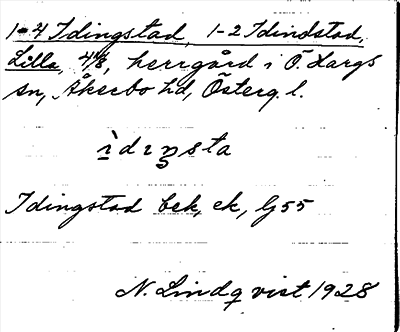 1-4 Idingstad, 1-2 Idindstad,
Lilla, herrgård i Ö. Xargs
sn, Åkerbo hd, Österg. l.
ìdıŋsta
Idingstad bek, ek, G55
N. Lindqvist 1928